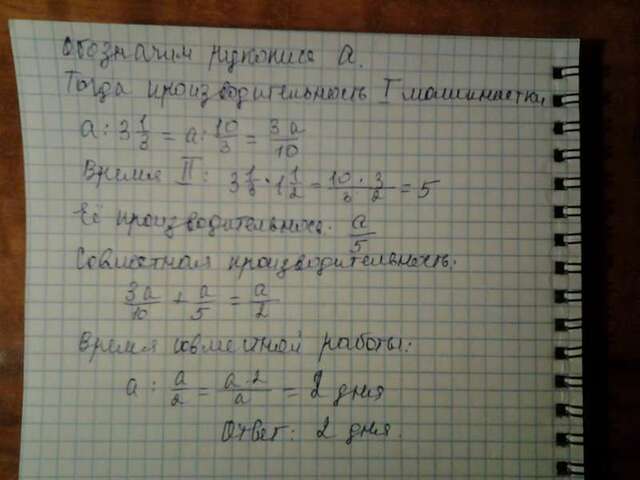 Обозначим рукопись а.
Тогда производительность I машинистки
а : 3 1/3 = а : 10/3 = 3а/10
Время II: 3 1/3 · 1 1/2 = 10 · 3 / 3 · 2 = 5
Её производительнос. а/5
Совместная производительность:
3а/10 + а/5 = а/2
Время совместной работы:
а : а/2 = а · 2/а = 2 дня
Ответ: 2 дня.